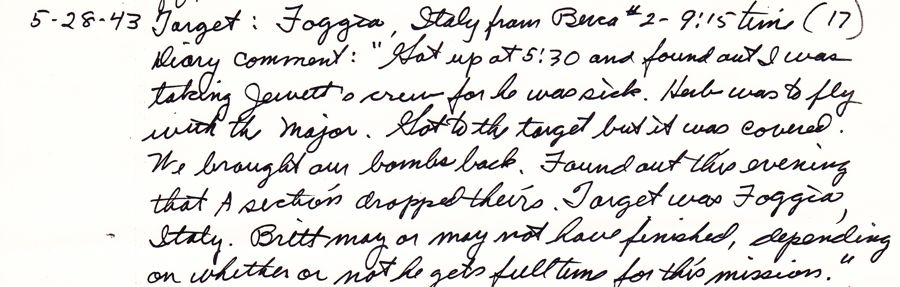 5-28-43 Target: Foggia, Italy from Berca #2- 9:15 time (17)
Diary comment: "Got up at 5:30 and found out I was
taking Jewett's crew for he was sick. Herb was to fly
with the Major. Got to the target but it was covered.
We brought our bombs back. Found out this evening
that A section dropped theirs. Target was Foggia,
Italy. Britt may or may not have finished, depending
on whether or not he gets full time for this mission."